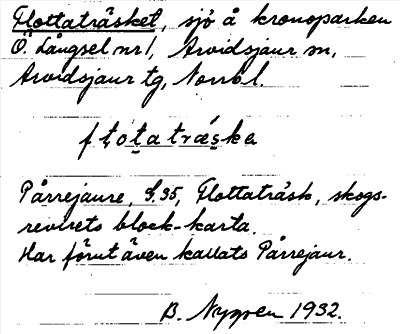 Flottaträsket, sjö å kronoparken
Ö. Långsel nr 1, Arvidsjaur sn,
Arvidsjaur tg, Norrb. l.
flotatrӓ́ska
Pårrejaure, S. 35, Flottaträsk, skogs-
revirets block-karta.
Har förut även kallats Pårrejaur.
B. Nygren 1932.